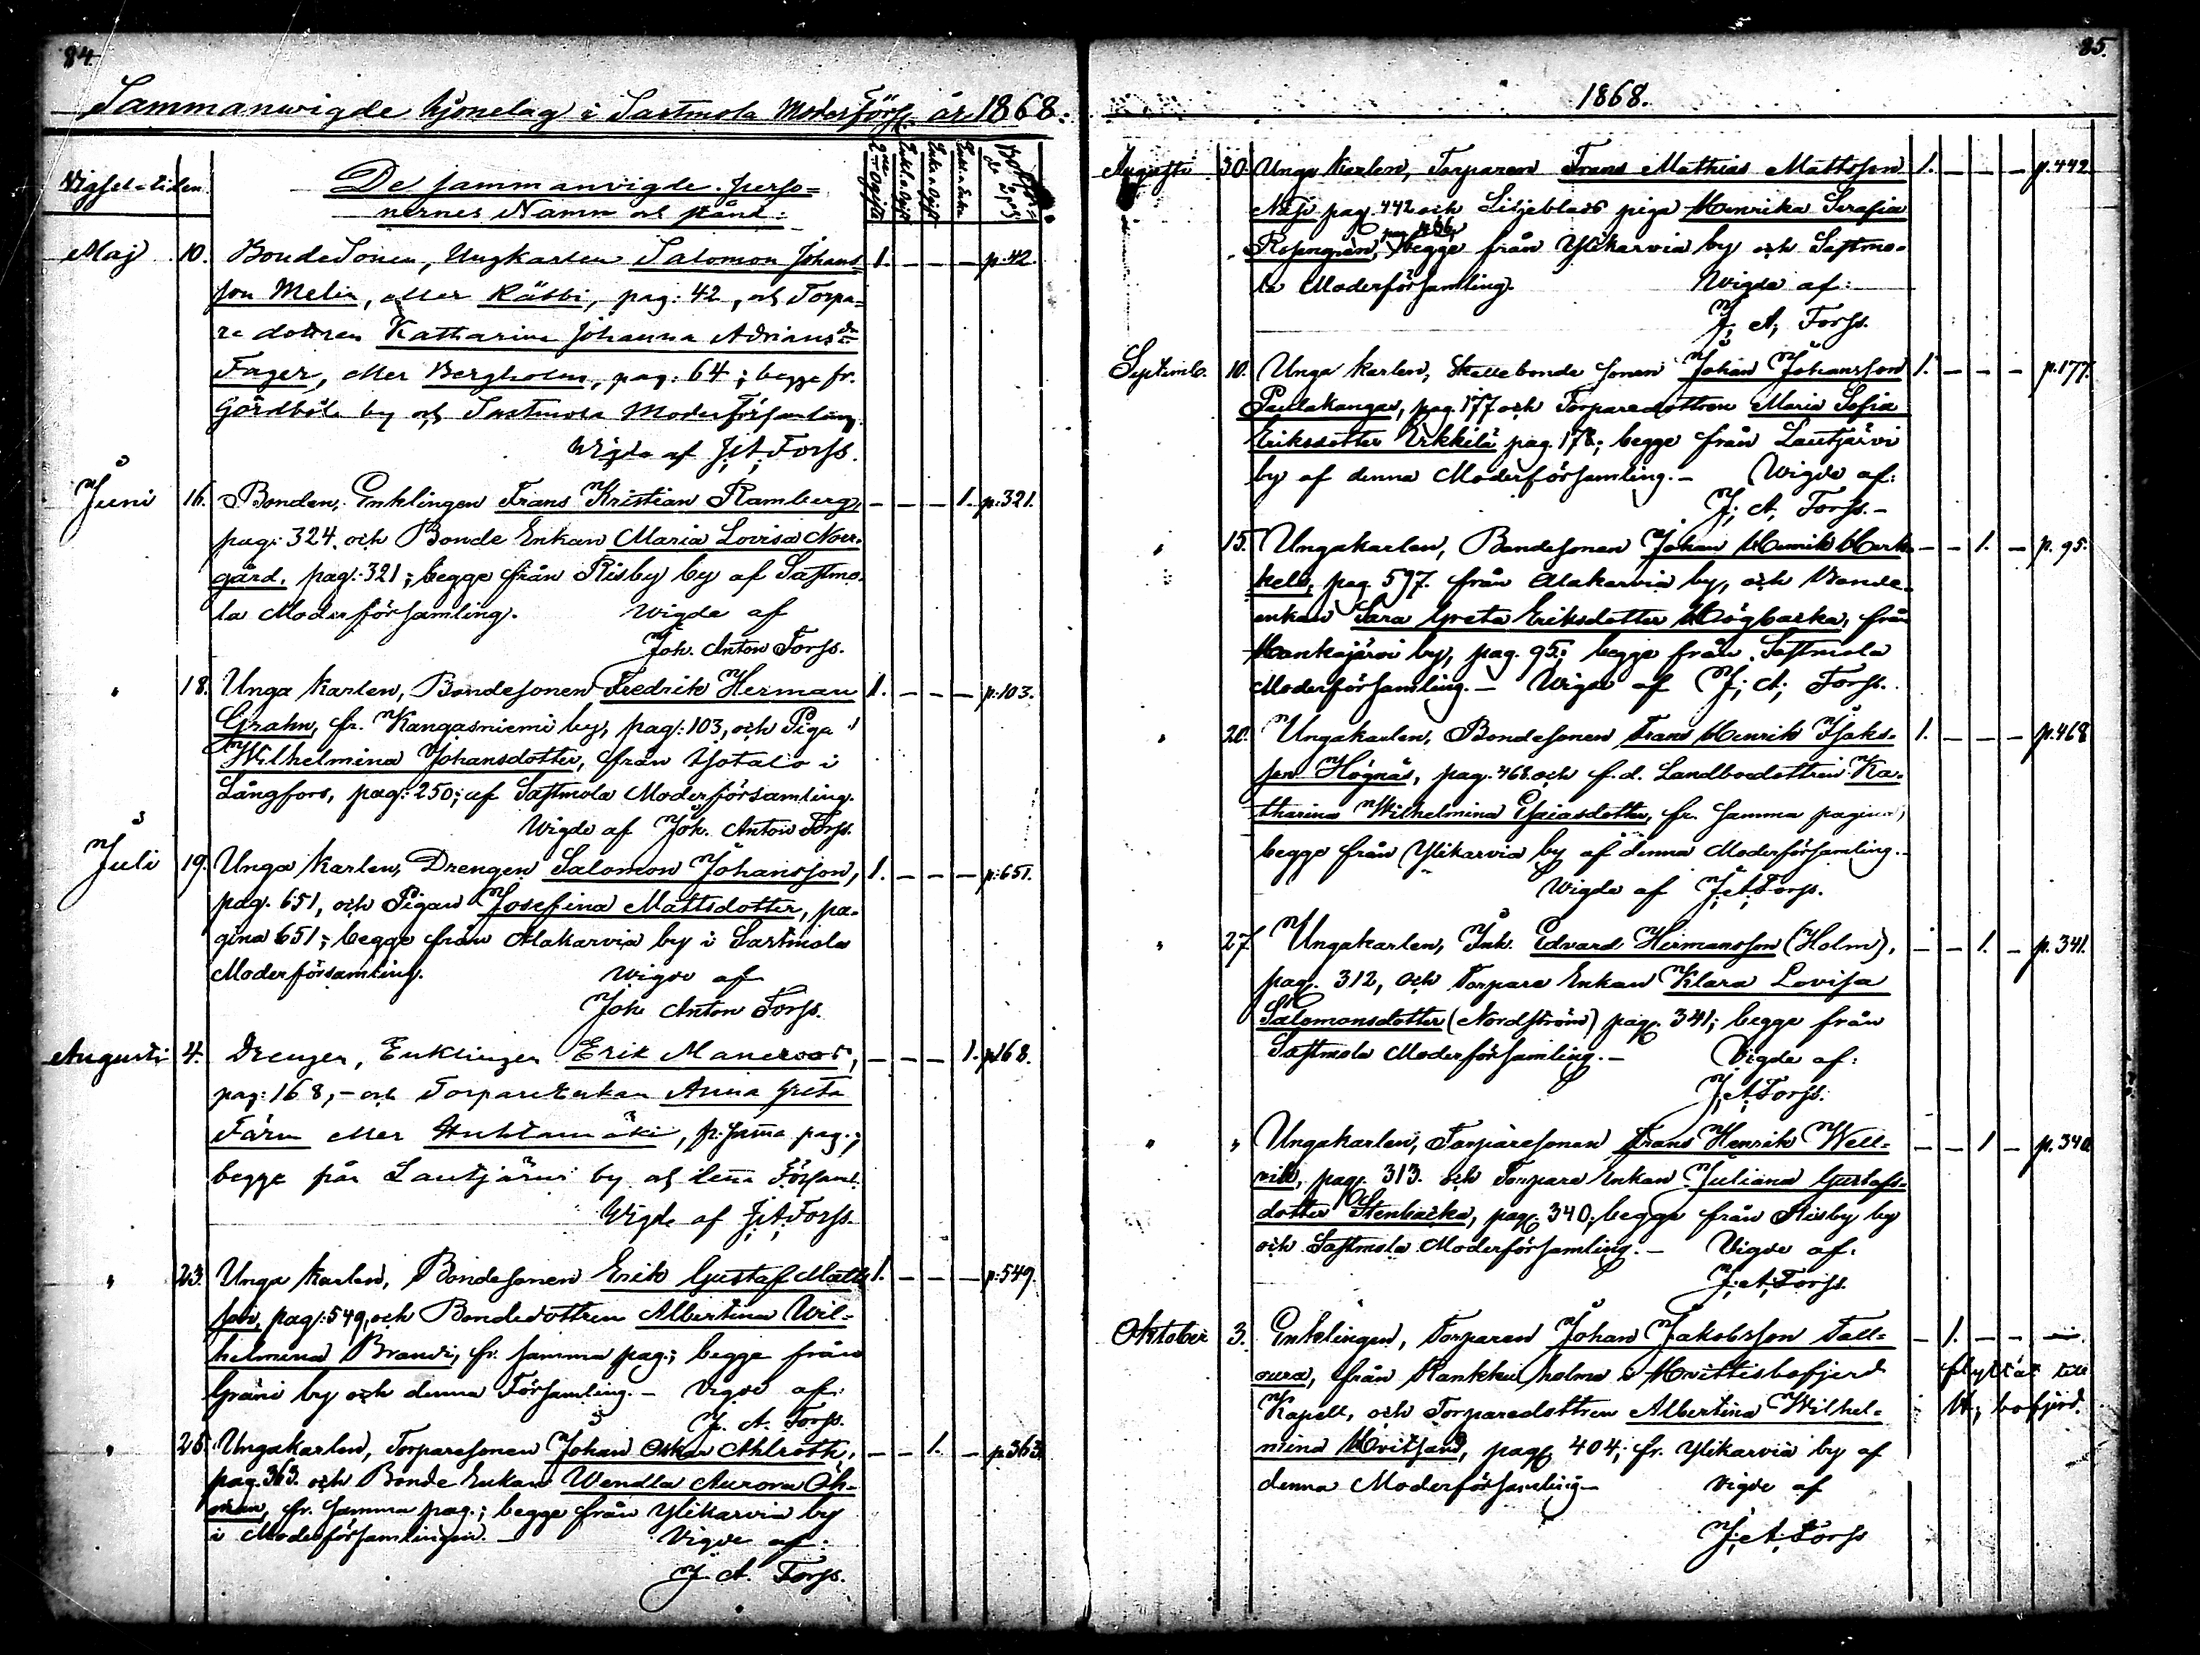 84.
Sammanwigde hjonelag i Sastmola Moderförs. år 1868.
Vigsel-tiden.
De sammanvigde perso-
nernes Namn och stånd:
Maj 10. BondeSonen, Ungkarlen Salomon Johans- 1. – – – p. 42.
son Melin, eller Rätbi, pag: 42, och Torpa-
re dottren Katharina Johanna Adriansdr
Fager, eller Bergholm, pag: 64; begge fr.
Gårdböle by och Sastmola Moderförsamling.
Wigde af J. A. Forss.
Juni 16. Bonden, Enklingen Frans Kristian Ramberg, – – – 1. p: 321.
pag: 324. och Bonde Enkan Maria Lovisa Norr-
gård, pag: 321; begge från Risby by af Sastmo-
la Moderförsamling. Wigde af
Joh. Anton Forss.
" 18. Unga Karlen, Bondesonen Fredrik Herman 1. – – – p: 103.
Grahn, fr. Kangasniemi by, pag: 103, och Piga
Wilhelmina Johansdotter, från Ysotalo i
Långfors, pag: 250; af Sastmola Moderförsamling.
Wigde af Joh. Anton Forss.
Juli 19. Unga Karlen, Drengen Salomon Johansson, 1. – – – p: 651.
pag. 651, och Pigan Josefina Mattsdotter, pa-
gina 651; begge från Alakarvia by i Sastmola
Moderförsamling. Wigde af
Joh Anton Forss.
Augusti 4. Drengen, Enklingen Erik Maneroos, – – – 1. p 168.
pag: 168, – och TorpareEnkan Anna Greta
Färm eller Huhtamäki, fr. samma pag.;
begge från Lautjärvi by och denna Församl.
Wigde af J. A. Forss.
" 23. Unga Karlen, Bondesonen Erik Gustaf Matts 1. – – – p: 549.
son, pag: 549, och Bondedottren Albertina Wil-
helmina Brandi, fr. samma pag; begge från
Gräni by och denna Församling. – Vigde af:
J. A. Forss.
" 25. Ungakarlen, Torparesonen Johan Oskar Ahlroth, – – 1. – p 363.
pag. 363. och Bonde Enkan Wendla Aurora Öh-
man, fr. samma pag.; begge från Ylikarvia by
i Moderförsamlingen. – Vigde af:
J. A. Forss.
85.
1868.
Augusti 30. Unga Karlen, Torparen Frans Mathias Mattsson 1. – – – p. 442
Näsi pag. 442 och Liljeblads piga Henrika Serafia
pag. 466,
Rosengren, begge från Ylikarvia by och Sastmo-
la Moderförsamling. Wigde af:
J. A. Forss.
Septemb. 10. Unga Karlen, Skattebonde sonen Johan Johansson 1. – – – p. 177.
Paulakangas, pag. 177 och Torparedottren Maria Sofia
Eriksdotter Erkkilä pag. 178; begge från Lautjärvi
by af denna Moderförsamling. – Wigde af:
J. A. Forss. –
" 15. Ungakarlen, Bondesonen Johan Henrik Herk- – – 1. – p. 95.
kell, pag. 597. från Alakarvia by, och Bonde-
enkan Sara Greta Eriksdotter Högbacka, från
Hankajärvi by, pag. 95; begge från Sastmola
Moderförsamling. – Wigde af J. A. Forss.
" 20. Ungakarlen, Bondesonen Frans Henrik Isaks- 1. – – – p. 468
son Högnäs, pag. 468. och f. d. Landbodottren Ka-
tharina Wilhelmina Esaiasdotter, fr. samma pagina,
begge från Ylikarvia by af denna Moderförsamling. –
Wigde af J. A. Forss.
" 27. Ungakarlen, Inh. Edvard Hermansson (Holm), – – 1. – p. 341.
pag. 312, och Torpare Enkan Klara Lovisa
Salomonsdotter (Nordström) pag. 341; begge från
Sastmola Moderförsamling. – Vigde af:
J. A. Forss.
" " Ungakarlen, Torparesonen Frans Henrik Well- – – 1 – p. 340
vik, pag. 313. och Torpare Enkan Juliana Gustafs-
dotter Stenbacka, pag. 340, begge från Risby by
och Sastmola Moderförsamling. – Vigde af:
J. A. Forss.
Oktober 3. Enklingen, Torparen Johan Jakobsson Tall- – 1. – – –
oura, från Kankku holme i Hvittisbofjerd flyttat till
Kapell, och Torparedottren Albertina Wilhel- H; bofjerd.
mina Hvitsand, pag. 404; fr. Ylikarvia by af
denna Moderförsamling – Vigde af
J. A. Forss